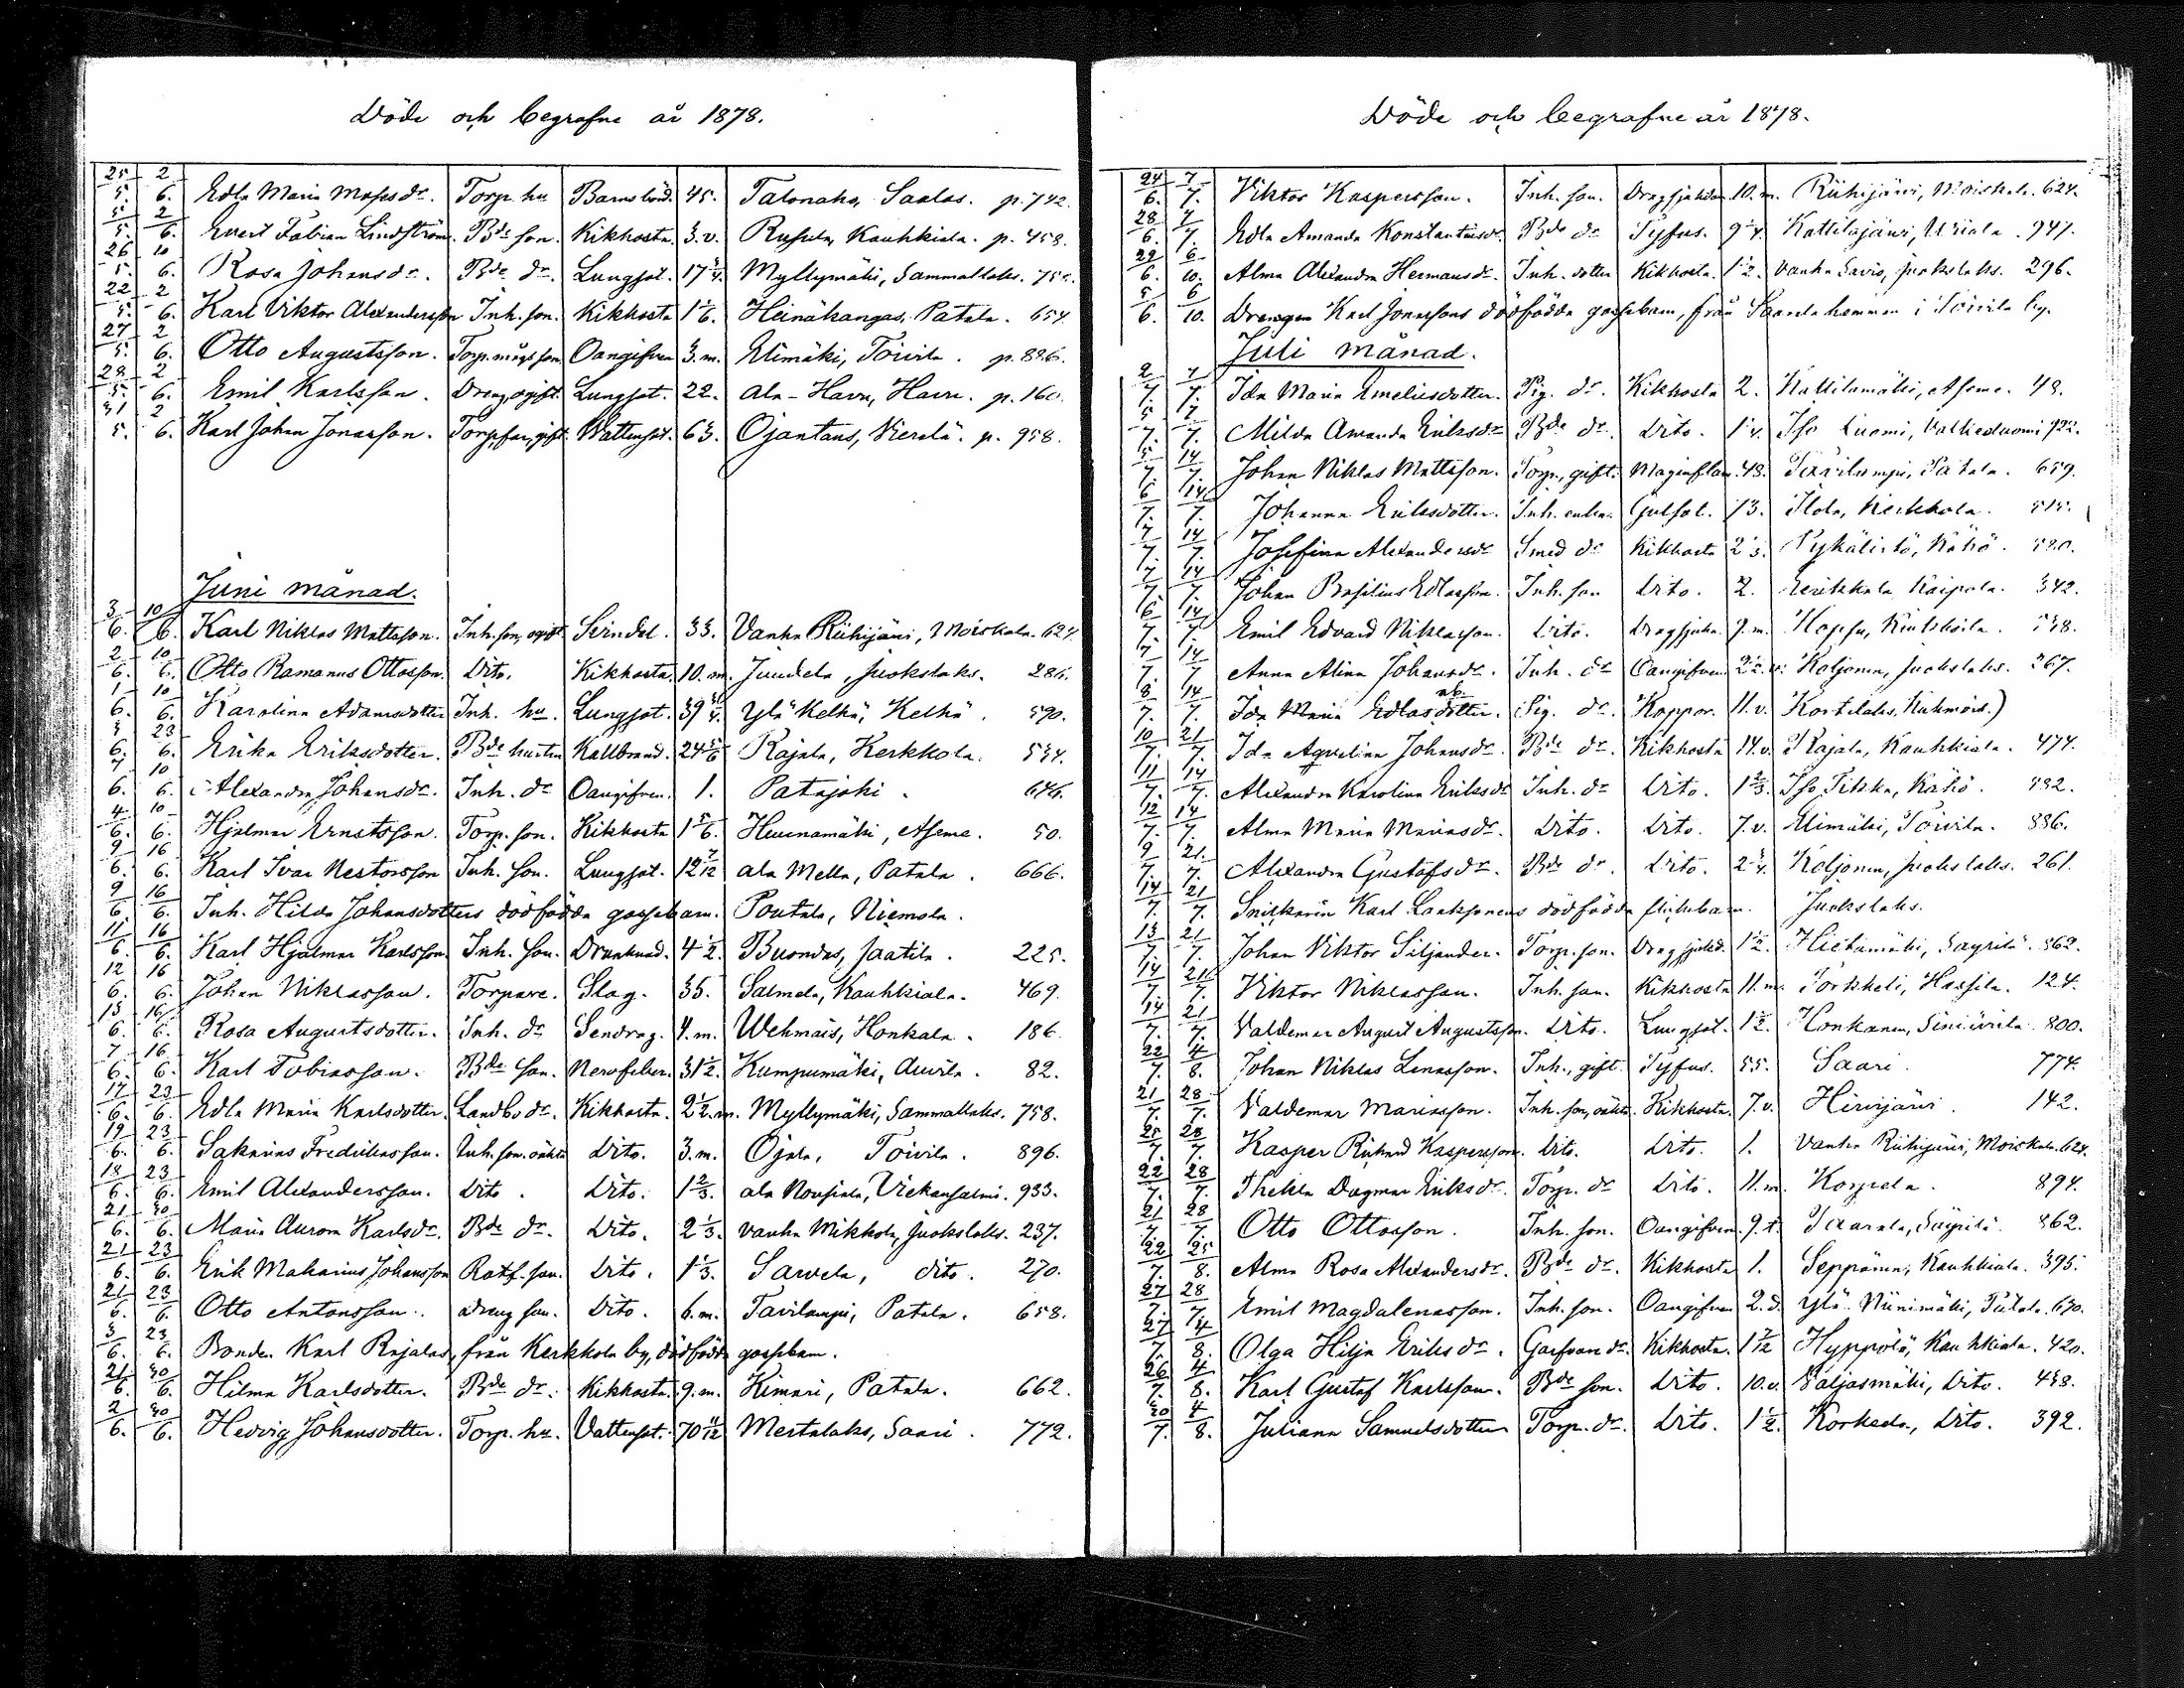 Döde och begrafne år 1878.
25/5. 2/6. Edla Maria Mossdr. Torp. hu Barnsbörd. 45. Talonaho, Saalas. p. 742.
5. 2/6. Evert Fabian Lindström. Bde son. Kikhosta. 3. v. Rusula, Kauhkiala. p. 458.
26/5. 10/6. Rosa Johansdr. Bde dr. Lungsot. 17 3/4. Myllymäki, Sammallaks.
22/5. 2/6. Karl Viktor Alexandersson Inh. son. Kikhosta 1 1/6. Heinäkangas, Patala. 654.
27/5. 2/6. Otto Augustsson. Torp. mågs son Oangifven 3. m. Elimäki, Toivila. p. 886.
28/5. 2/6. Emil Karlsson. Dreng ogift. Lungsot. 22. Ala-Havu, Havu. p. 160.
31/5. 2/6. Karl Johan Jonasson. Torpfar, gift Wattensot. 63. Ojantaus, Vierelä. p. 958.
Juni månad.
3/6. 10/6. Karl Niklas Mattsson. Inh. son, ogift Svindel. 33. Vanha Riihijärvi, Moiskala. 624.
2/6. 10/6. Otto Romanus Ottosson. Dito. Kikhosta. 10. m. Juudela, Juokslaks. 286.
1/6. 10/6. Karolina Adamsdotter Inh. hu. Lungsot. 39 Ylä Kelhä, Kelhä. 590.
6. 23/6. Erika Eriksdotter. Bde hustru Kallbrand. 24 5/6 Rajala, Kerkkola. 534.
6. 10/6. Alexandra Johansdr. Inh. dr Oangifven. 1. Patajoki. 646.
4/6. 10/6. Hjalmar Ernstsson. Torp. son. Kikhosta 1 5/6. Huurnamäki, Aseme. 50.
9/6. 16/6. Karl Ivar Nestorsson Inh. son. Lungsot. 12 7/12 ala Mella, Patala. 666.
9/6. 16/6. Inh. Hilda Johansdotters dödfödda gossebarn. Poutala, Niemola.
11/6. 16/6. Karl Hjalmar Karlsson Inh. son. Drunknad. 4 1/2. Buondas, Jaatila. 225.
12/6. 16/6. Johan Niklasson. Torpare. Slag. 35. Salmela, Kauhkiala. 469.
13/6. 16/6. Rosa Augustsdotter. Inh. dr Sendrag. 4. m. Wehmais, Honkala. 186.
7/6. 16/6. Karl Tobiasson. Bde son. Nervfeber. 31 1/2. Kumpumäki, Auvila. 82.
17/6. 23/6. Edla Maria Karlsdotter. Landbo dr. Kikhosta. 2 1/2. m. Myllymäki, Sammallaks. 758.
19/6. 23/6. Sakarias Fredriksson. Inh. son. oäkta Dito. 3. m. Ojala, Toivila. 896.
18/6. 23/6. Emil Alexandersson. Dito. Dito. 1 2/3. ala Nousiala, Viekansalmi. 933.
21/6. 30/6. Maria Aurora Karlsdr. Bde dr. Dito. 2 1/3. vanha Mikkola, Juokslaks. 237.
21/6. 23/6. Erik Makarius Johansson Rotf. son. Dito. 1 1/3. Sarvela, dito. 270.
21/6. 23/6. Otto Antonsson. dreng son. Dito. 6. m. Tavilampi, Patala. 658.
3/6. 23/6. Bonden Karl Rajalas, från Kerkkola by, dödfödda gossebarn.
21/6. 30/6. Hilma Karlsdotter. Bde dr. Kikhosta. 9. m. Kimari, Patala. 662.
2/6. 30/6. Hedvig Johansdotter. Torp. hu. Vattensot. 70 11/12 Mertalaks, Saari. 772.
Döde och begrafne år 1878.
24/6. 7/7. Viktor Kaspersson. Inh. son. Dragsjukdom 10. m. Riihijärvi, Moiskala. 624.
28/6. 7/7. Edla Amanda Konstantinsdr. Bde dr Tyfus. 9 1/4. Kattilajärvi, Uriala. 947.
22/6. 6/10. Alma Alexandra Hermansdr. Inh. dotter Kikhosta. 1 1/2. Vanha Savio, Juokslaks. 296.
5/6. 6/10. Drengen Karl Jonassons dödfödda gossebarn, från Saarela hemman i Toivila by.
Juli månad.
2/7. 7/7. Ida Maria Emeliusdotter. Pig. dr. Kikhosta 2. Kattilamäki, Aseme. 48.
5/7. 7/7. Milda Amanda Eriksdr Bde dr. Dito. 1 1/4. Iso Luomi, 922.
5/7. 14/7. Johan Niklas Mattsson. Torp., gift. Maginflam. 43. Tavilampi, Patala. 659.
6/7. 14/7. Johanna Eriksdotter. Inh. enka. Gulsot. 73. Ilola, Kerkkola. 515.
7/7. 14/7. Josefina Alexandersdr Smed dr Kikhosta 2 1/3. Pykälistö, Kähö. 580.
7/7. 14/7. Johan Basilius Edlasson. Inh. son Dito. 2. Kaipola. 342.
6/7. 14/7. Emil Edvard Niklasson. Dito. Dragsjuka. 9. m. Hopsu, 538.
7/7. 14/7 Anna Alina Johansdr. Inh. dr Oangifven 2 1/2. v. Koljonen, Juokslaks. 267.
8/7. 14/7. Ida Maria Edlasdotter. Pig. dr. Koppor. 11. v. Kortelaks, Kuhmois.)
10/7. 21/7. Ida Aqvelina Johansdr. Bde dr. Kikhosta 14. v. Rajala, Kauhkiala. 474.
11/7. 14/7. Alexandra Karolina Eriksdr Inh. dr Dito. 1 2/3. Iso Tikka, Kähö. 582.
12/7. 14/7. Alma Maria Mariasdr. Dito. Dito. 7. v. Elimäki, Toivila. 886.
9/7. 21/7. Alexandra Gustafsdr. Bde dr. Dito. 2 3/4. Koljonen, Juokslaks. 261.
14/7. 21/7. Snickaren Karl Laaksonens dödfödda flickebarn. Juokslaks.
13/7. 21/7. Johan Viktor Siljander. Torp. son. Dragsjukd. 1 1/2. Hietamäki, Säyrilä. 862.
14/7. 21/7. Viktor Niklasson. Inh. son. Kikhosta 11. m. Torkkeli, Hassila. 124.
14/7. 21/7. Valdemar August Augustsson. Dito. Lungsot. 1 1/2. Honkanen, 800.
22/7. 4/8. Johan Niklas Lenasson. Inh., gift. Tyfus. 55. Saari. 774.
21/7. 28/7. Valdemar Mariasson. Inh. son, oäkta. Kikhosta. 7. v. Hirvijärvi. 142.
25/7. 28/7. Kasper Rikard Kaspersson. Dito. Dito. 1. Vanha Riihijärvi, Moiskala. 624.
22/7. 28/7. Thekla Dagmar Eriksdr. Torp. dr Dito. 11. m. Korpela. 894.
21/7. 28/7. Otto Ottosson. Inh. son. Oangifven 9. t. Saarela, Säyrilä. 862.
22/7. 25/8. Alma Rosa Alexandersdr. Bde dr. Kikhosta 1. Seppänen, Kauhkiala. 395.
27/7. 28/7. Emil Magdalenasson. Inh. son. Oangifven 2. d. Ylä-Niinimäki, Patala. 670.
27/7. 4/8. Olga Hilja Eriksdr. Garfvare dr. Kikhosta. 1 7/12 Hyppölä, Kauhkiala. 420.
26/7. 4/8. Karl Gustaf Karlsson. Bde son. Dito. 10. v. Väljäsmäki, Dito. 458.
30/7. 4/8. Juliana Samuelsdotter Torp. dr. Dito. 1 1/2. Korkeala, Dito. 392.